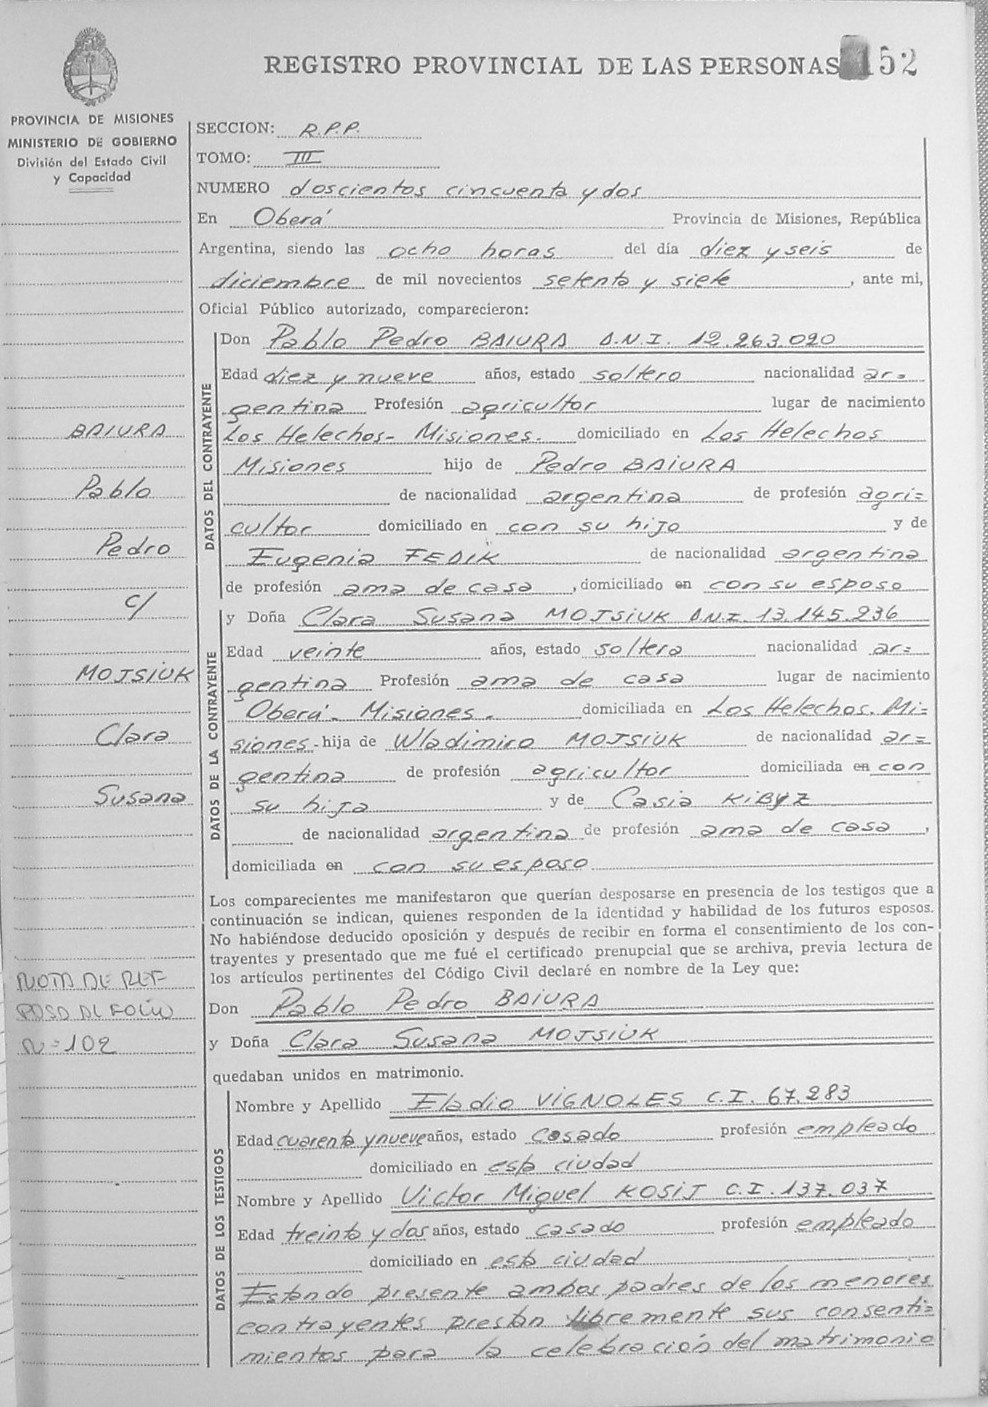 REGISTRO PROVINCIAL DE LAS PERSONAS 152
PROVINCIA DE MISIONES
MINISTERIO DE GOBIERNO
División del Estado Civil
y Capacidad
BAIURA
Pablo
Pedro
c/
MOJSIUK
Clara
Susana
NOTA DE REF
AL FOLIO
Nº 102
SECCION: R.P.P.
TOMO: III
NUMERO doscientos cincuenta y dos
En Oberá Provincia de Misiones, República
Argentina, siendo las ocho horas del día diez y seis de
diciembre de mil novecientos setenta y siete, ante mi,
Oficial Público autorizado, comparecieron:
DATOS DEL CONTRAYENTE
Don Pablo Pedro BAIURA D.N.I. 12.263.020
Edad diez y nueve años, estado soltero nacionalidad ar=
gentina Profesión agricultor lugar de nacimiento
Los Helechos- Misiones. domiciliado en Los Helechos
Misiones hijo de Pedro BAIURA
de nacionalidad argentina de profesión agri=
cultor domiciliado en con su hijo y de
Eugenia FEDIK de nacionalidad argentina
de profesión ama de casa, domiciliado en con su esposo
DATOS DE LA CONTRAYENTE
y Doña Clara Susana MOJSIUK D.N.I. 13.145.236
Edad veinte años, estado soltera nacionalidad ar=
gentina Profesión ama de casa lugar de nacimiento
Oberá- Misiones. domiciliada en Los Helechos. Mi=
siones.- hija de Wladimiro MOJSIUK de nacionalidad ar=
gentina de profesión agricultor domiciliada en con
su hija y de Casia KIBYZ
de nacionalidad argentina de profesión ama de casa,
domiciliada en con su esposo
Los comparecientes me manifestaron que querían desposarse en presencia de los testigos que a
continuación se indican, quienes responden de la identidad y habilidad de los futuros esposos.
No habiéndose deducido oposición y después de recibir en forma el consentimiento de los con-
trayentes y presentado que me fué el certificado prenupcial que se archiva, previa lectura de
los artículos pertinentes del Código Civil declaré en nombre de la Ley que:
Don Pablo Pedro BAIURA
y Doña Clara Susana MOJSIUK
quedaban unidos en matrimonio.
DATOS DE LOS TESTIGOS
Nombre y Apellido Eladio VIGNOLES C.I. 67.283
Edad cuarenta y nueve años, estado Casado profesión empleado
domiciliado en esta ciudad
Nombre y Apellido Victor Miguel KOSIJ C.I. 137.037
Edad treinta y dos años, estado casado profesión empleado
domiciliado en esta ciudad
Estando presente ambos padres de los menores
contrayentes prestan libremente sus consenti=
mientos para la celebración del matrimonio